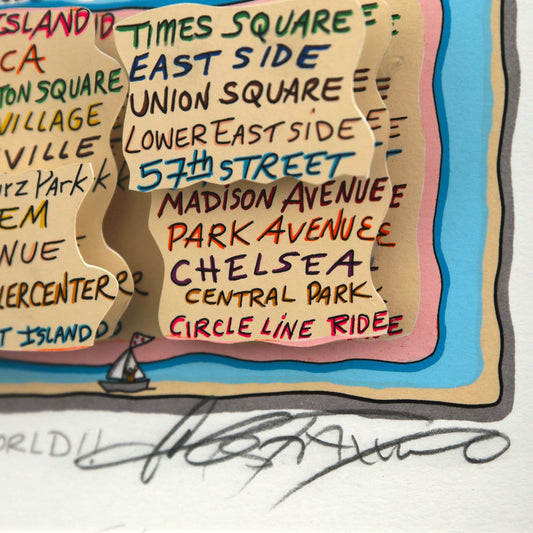 ISLAND
CA
TON SQUARE
VILLAGE
VILLE
RZ PARK
EM
NUE
LERCENTER
T ISLAND
TIMES SQUARE
EAST SIDE
UNION SQUARE
LOWER EAST SIDE
57th STREET
MADISON AVENUE
PARK AVENUE
CHELSEA
CENTRAL PARK
CIRCLE LINE RIDE
ORLD!!